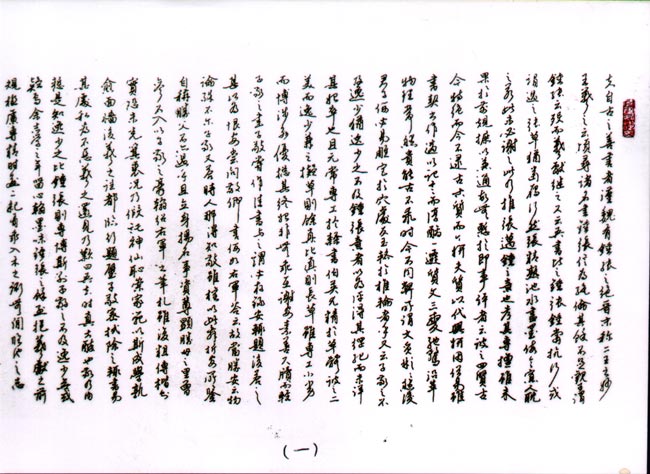 夫自古之善書者漢魏有鍾張之絕晉末稱二王之妙
王羲之云頃尋諸名書鍾張信為絕倫其餘不足觀可謂
鍾張云沒而羲獻繼之又云吾書比之鍾張鍾當抗行或
謂過之張草猶當雁行然張精熟池水盡墨假令寡人耽
之若此未必謝之此乃推張邁鍾之意也考其專擅雖未
果於前規摭以兼通故無慚於即事評者云彼之四賢古
今特絕而今不逮古古質而今妍夫質以代興妍因俗易雖
書契之作適以記言而淳醨一遷質文三變馳騖沿革
物理常然貴能古不乖時今不同弊所謂文質彬彬然後
君子何必易雕宮於穴處反玉輅於椎輪者乎又云子敬之不
及逸少猶逸少之不及鍾張意者以為評得其綱紀而未詳
其始卒也且元常專工於隸書伯英尤精於草體彼之二
美而逸少兼之擬草則餘真比真則長草雖專工小劣
而博涉多優總其終始匪無乖互謝安素善尺牘而輕
子敬之書子敬嘗作佳書與之謂必存錄安輒題後答之
甚以為恨安嘗問敬卿書何如右軍答云故當勝安云物
論殊不爾子敬又答時人那得知敬雖權以此辭折安所鑒
自稱勝父不亦過乎且立身揚名事資尊顯勝母之里曾
參不入以子敬之豪翰紹右軍之筆札雖復粗傳楷則
實恐未克箕裘況乃假託神仙恥崇家範以斯成學孰
愈面牆後羲之往都臨行題壁子敬密拭除之輒書易
其處私為不惡羲之還見乃歎曰吾去時真大醉也敬乃內
慚是知逸少之比鍾張則專博斯別子敬之不及逸少無或
疑焉余志學之年留心翰墨味鍾張之餘烈挹羲獻之前
規極慮專精時逾二紀有乖入木之術無間臨池之志
(一)